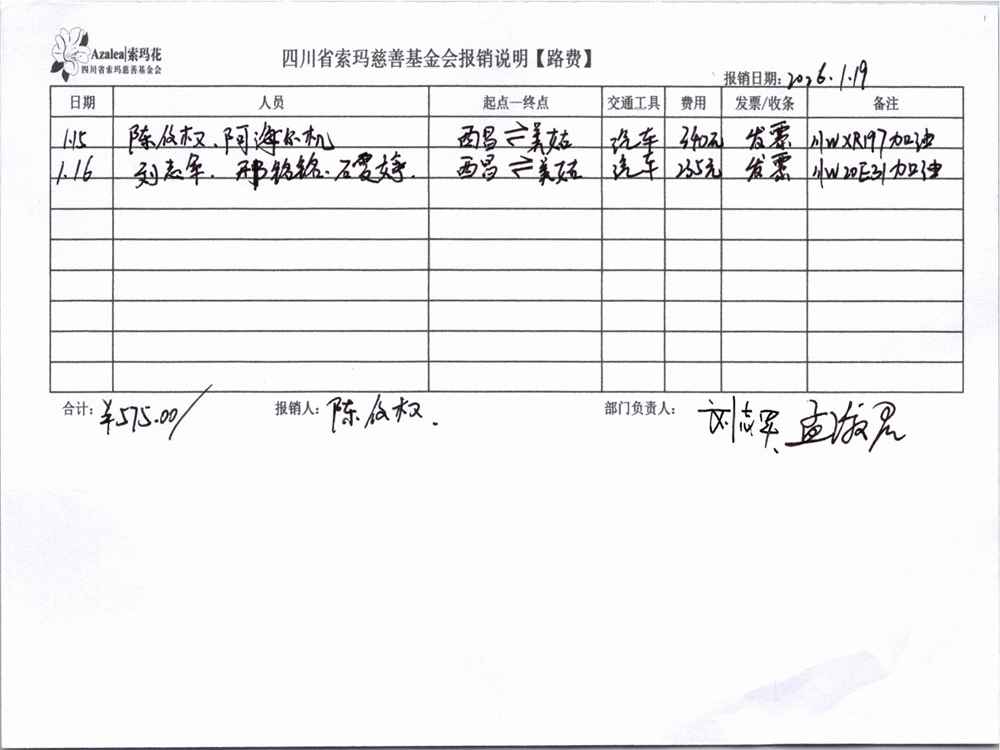 Azalea|索玛花
四川省索玛慈善基金会
四川省索玛慈善基金会报销说明【路费】
报销日期：2026.1.19
日期 人员 起点—终点 交通工具 费用 发票/收条 备注
1.15 陈俊权、阿海尔机 西昌⇌美姑 汽车 340元 发票 川WXR197加油
1.16 刘志军、 石雯婷. 西昌⇌美姑 汽车 235元 发票 川W20E31加油
合计：¥575.00/ 报销人：陈俊权. 部门负责人：刘志军、孟淑君